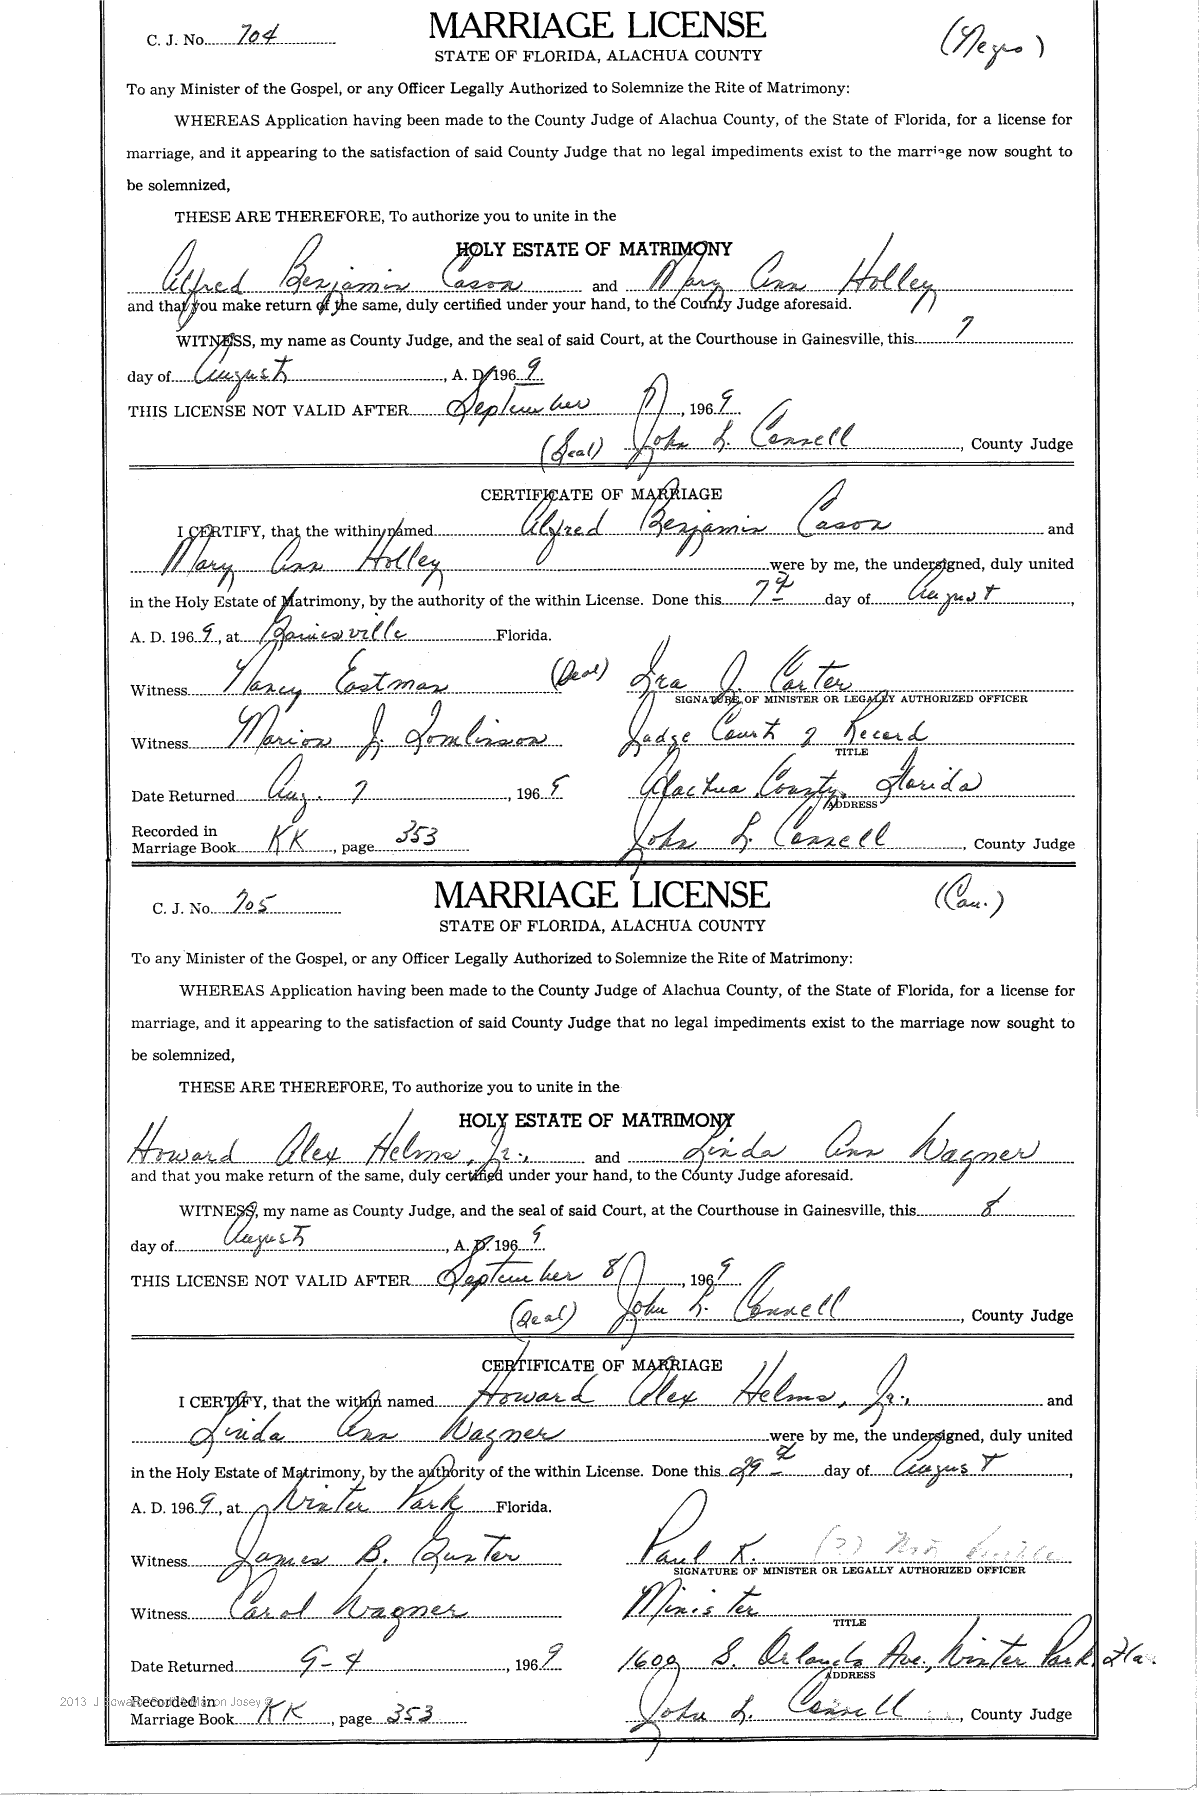 C. J. No. 704
MARRIAGE LICENSE
(Negro)
STATE OF FLORIDA, ALACHUA COUNTY
To any Minister of the Gospel, or any Officer Legally Authorized to Solemnize the Rite of Matrimony:
WHEREAS Application having been made to the County Judge of Alachua County, of the State of Florida, for a license for
marriage, and it appearing to the satisfaction of said County Judge that no legal impediments exist to the marriage now sought to
be solemnized,
THESE ARE THEREFORE, To authorize you to unite in the
HOLY ESTATE OF MATRIMONY
Alfred Benjamin Cason and Mary Ann Holley
and that you make return of the same, duly certified under your hand, to the County Judge aforesaid.
WITNESS, my name as County Judge, and the seal of said Court, at the Courthouse in Gainesville, this 7
day of August, A. D. 1969
THIS LICENSE NOT VALID AFTER September 7, 1969
(Seal) John L. Connell, County Judge
CERTIFICATE OF MARRIAGE
I CERTIFY, that the within named Alfred Benjamin Cason and
Mary Ann Holley were by me, the undersigned, duly united
in the Holy Estate of Matrimony, by the authority of the within License. Done this 7th day of August,
A. D. 1969, at Gainesville Florida.
Witness Nancy Eastman (Seal) Ira J. Carter
SIGNATURE OF MINISTER OR LEGALLY AUTHORIZED OFFICER
Witness Marion J. Tomlinson Judge Court of Record
TITLE
Date Returned Aug. 7, 1969 Alachua County, Florida
ADDRESS
Recorded in
Marriage Book KK, page 353 John L. Connell, County Judge
C. J. No. 705
MARRIAGE LICENSE
(Cau.)
STATE OF FLORIDA, ALACHUA COUNTY
To any Minister of the Gospel, or any Officer Legally Authorized to Solemnize the Rite of Matrimony:
WHEREAS Application having been made to the County Judge of Alachua County, of the State of Florida, for a license for
marriage, and it appearing to the satisfaction of said County Judge that no legal impediments exist to the marriage now sought to
be solemnized,
THESE ARE THEREFORE, To authorize you to unite in the
HOLY ESTATE OF MATRIMONY
Howard Alex Helms, Jr., and Linda Ann Wagner
and that you make return of the same, duly certified under your hand, to the County Judge aforesaid.
WITNESS, my name as County Judge, and the seal of said Court, at the Courthouse in Gainesville, this 8
day of August, A. D. 1969
THIS LICENSE NOT VALID AFTER September 8, 1969
(Seal) John L. Connell, County Judge
CERTIFICATE OF MARRIAGE
I CERTIFY, that the within named Howard Alex Helms, Jr., and
Linda Ann Wagner were by me, the undersigned, duly united
in the Holy Estate of Matrimony, by the authority of the within License. Done this 29th day of August,
A. D. 1969, at Winter Park Florida.
Witness James B. Gunter Paul K. (?)
SIGNATURE OF MINISTER OR LEGALLY AUTHORIZED OFFICER
Witness Carol Wagner Minister
TITLE
Date Returned 9-4, 1969 1609 S. Orlando Ave., Winter Park, Fla.
ADDRESS
2013 J
Recorded in
Marriage Book KK, page 353 John L. Connell, County Judge